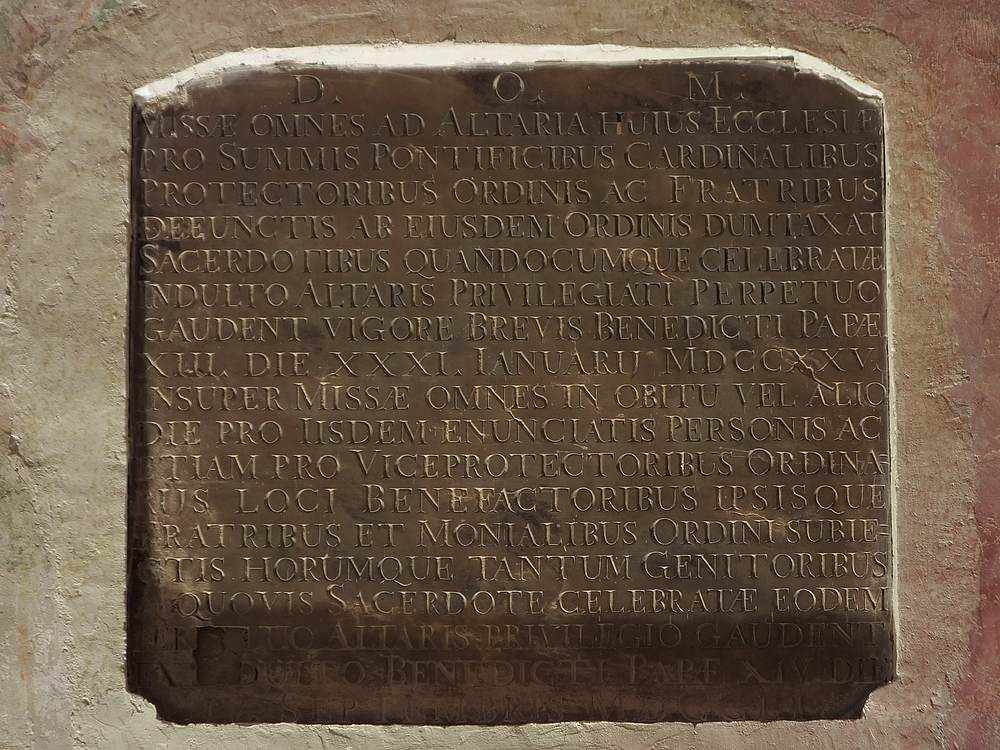 D. O. M.
MISSÆ OMNES AD ALTARIA HUIUS ECCLESIÆ
PRO SUMMIS PONTIFICIBUS CARDINALIBUS
PROTECTORIBUS ORDINIS AC FRATRIBUS
DEFUNCTIS AB EIUSDEM ORDINIS DUMTAXAT
SACERDOTIBUS QUANDOCUMQUE CELEBRATÆ
INDULTO ALTARIS PRIVILEGIATI PERPETUO
GAUDENT VIGORE BREVIS BENEDICTI PAPÆ
XIII. DIE XXXI. IANUARIJ MDCCXXV.
INSUPER MISSÆ OMNES IN OBITU VEL ALIO
DIE PRO IISDEM ENUNCIATIS PERSONIS AC
ETIAM PRO VICEPROTECTORIBUS ORDINA-
BUS LOCI BENEFACTORIBUS IPSISQUE
FRATRIBUS ET MONIALIBUS ORDINI SUBIE-
CTIS HORUMQUE TANTUM GENITORIBUS
QUOVIS SACERDOTE CELEBRATÆ EODEM
ALTARIS PRIVILEGIO GAUDENT
INDULTO BENEDICTI PAPÆ XIV DIE
SEPTEMBRIS